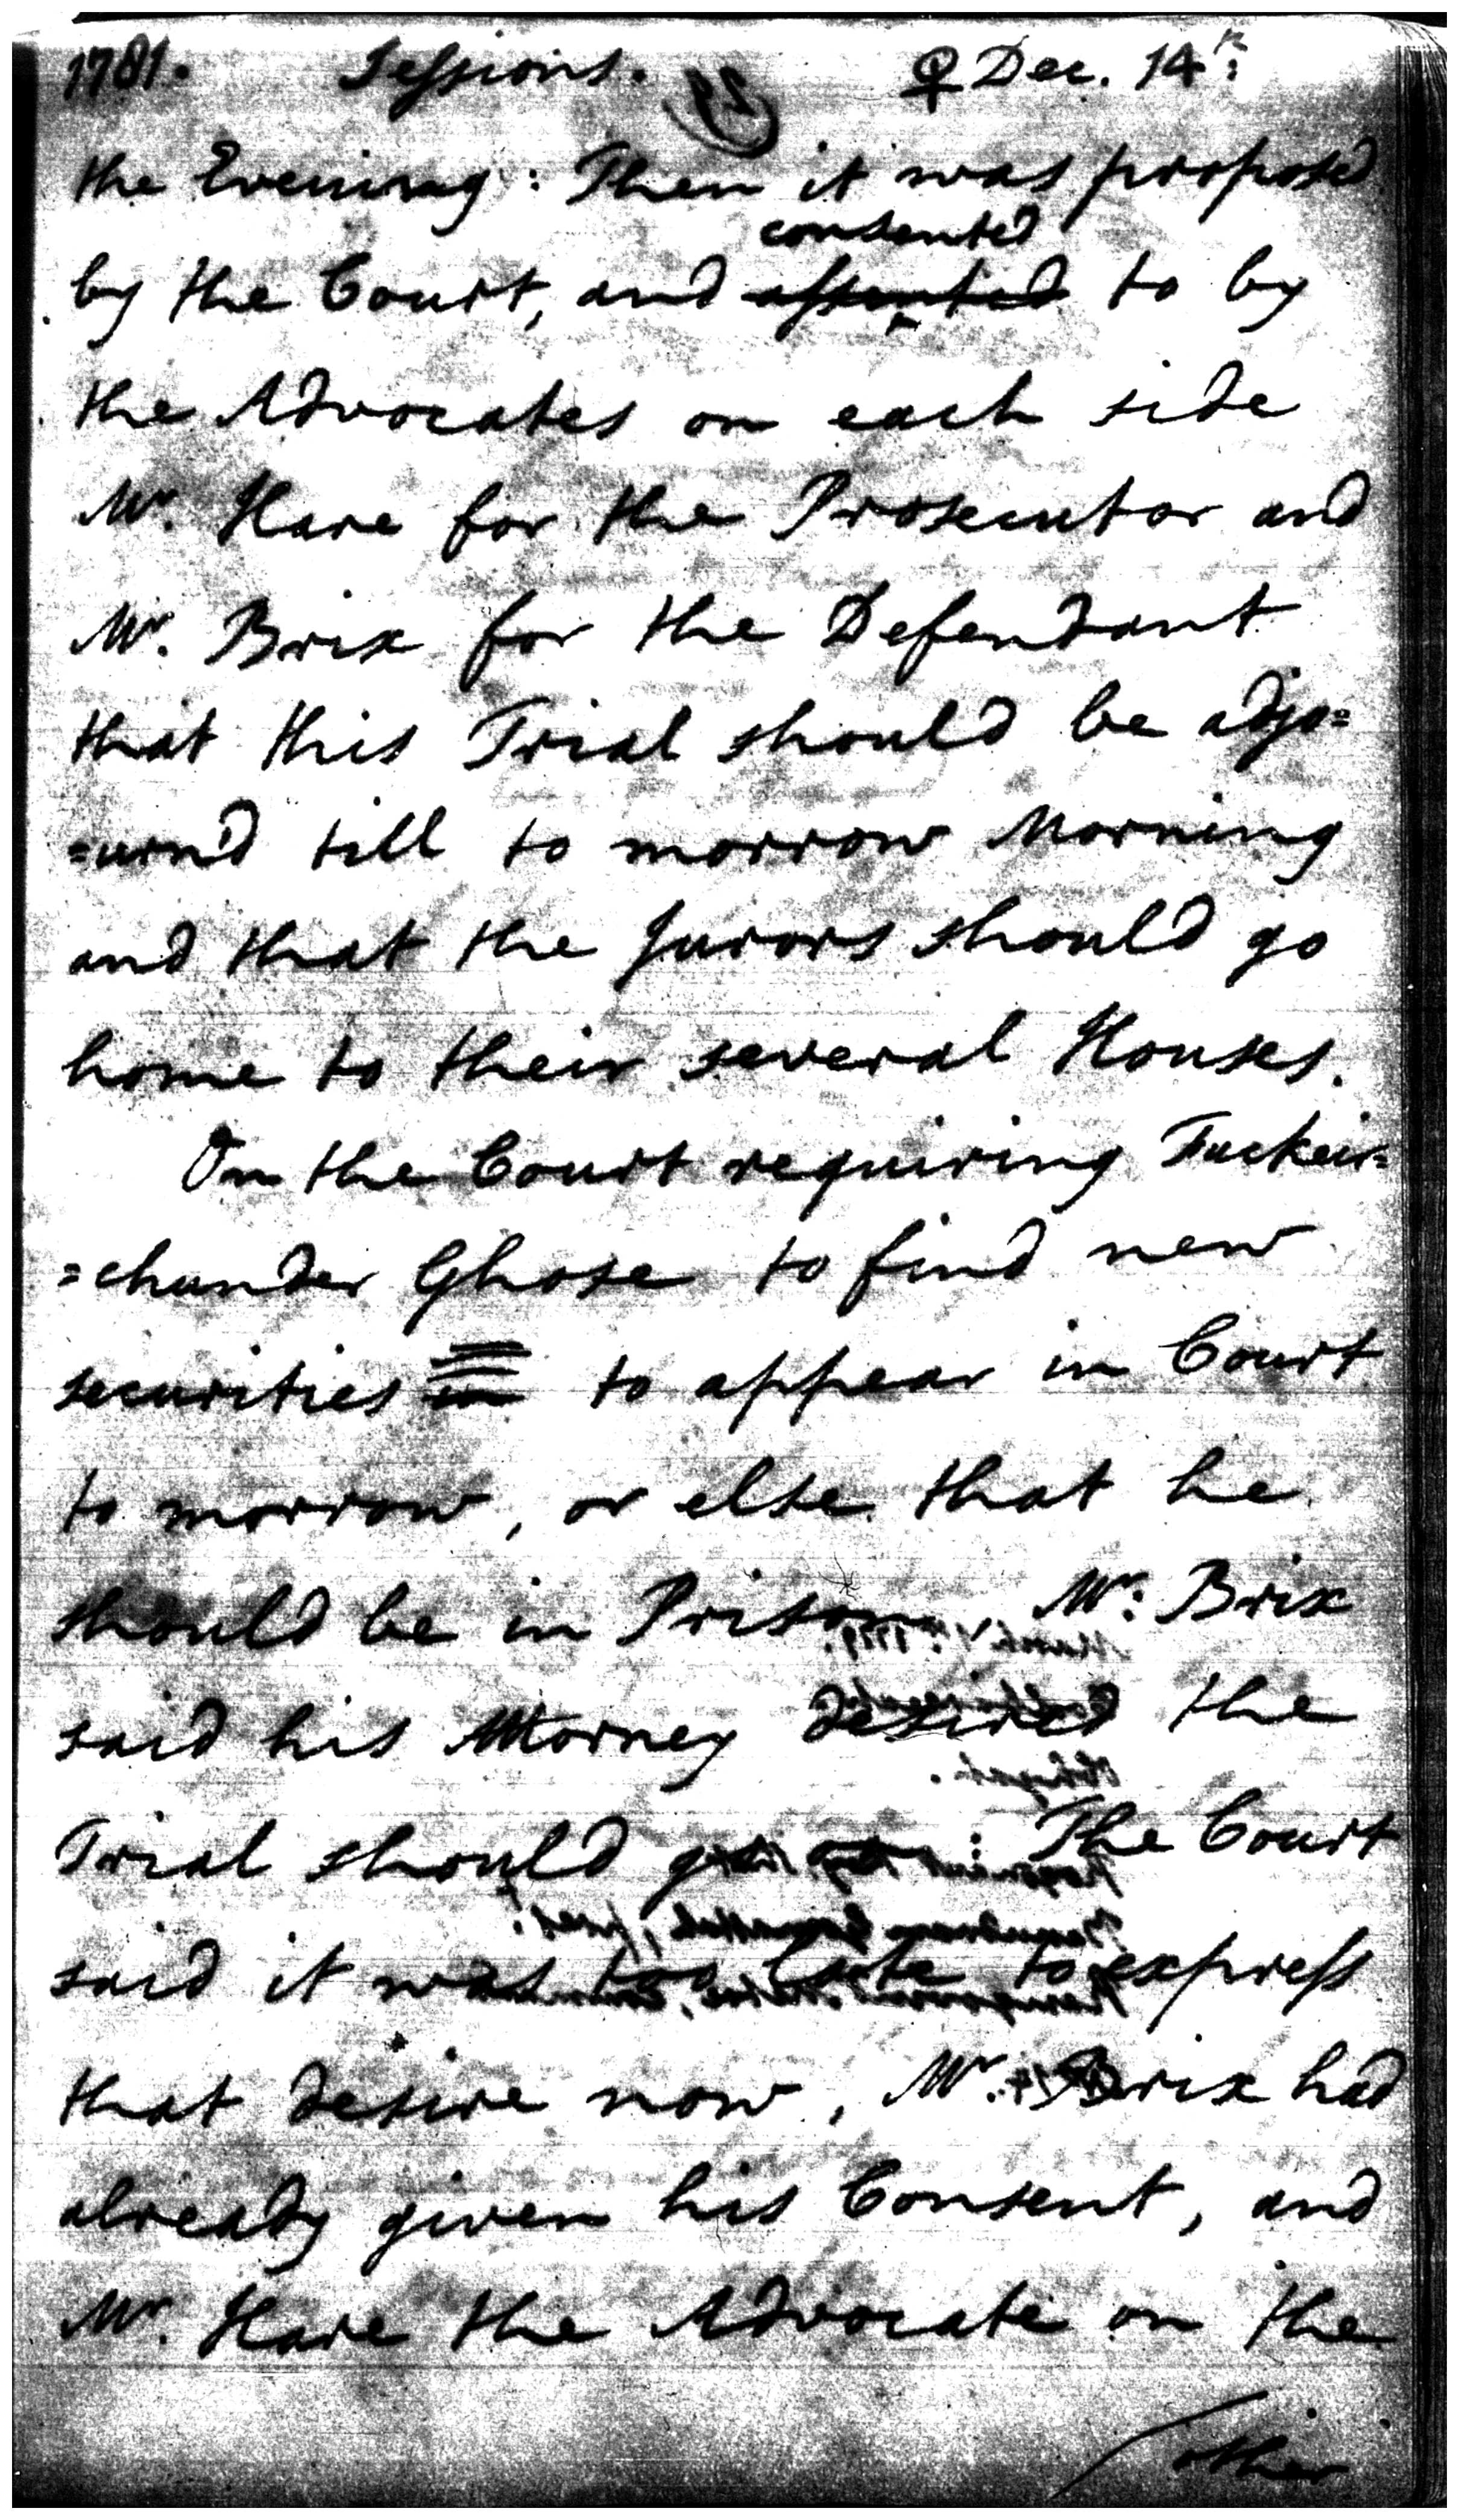 1781. Sessions. ♀ Dec. 14th:
the Evening: Then it was proposed
consented
by the Court, and assented to by
the Advocates on each side
Mr. Hare for the Prosecutor and
Mr. Brix for the Defendant
that this Trial should be adjo=
=urn'd till to morrow Morning
and that the Jurors should go
home to their several Houses.
On the Court requiring Tuckeir=
=chunder Ghose to find new
securities in to appear in Court
to morrow, or else that he
should be in Prison, Mr: Brix
said his Attorney desired the
Trial should go on: The Court
said it was too late to express
that desire now, Mr. Brix had
already given his Consent, and
Mr. Hare the Advocate on the
other